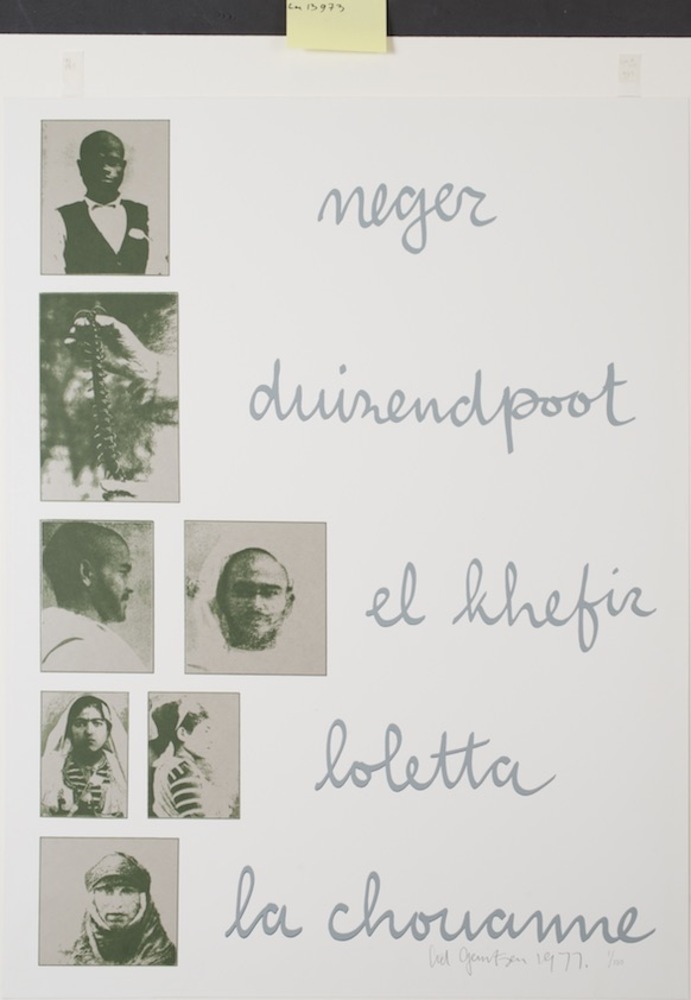 13973
neger
duizendpoot
el khefir
loletta
la chouanne
1977.